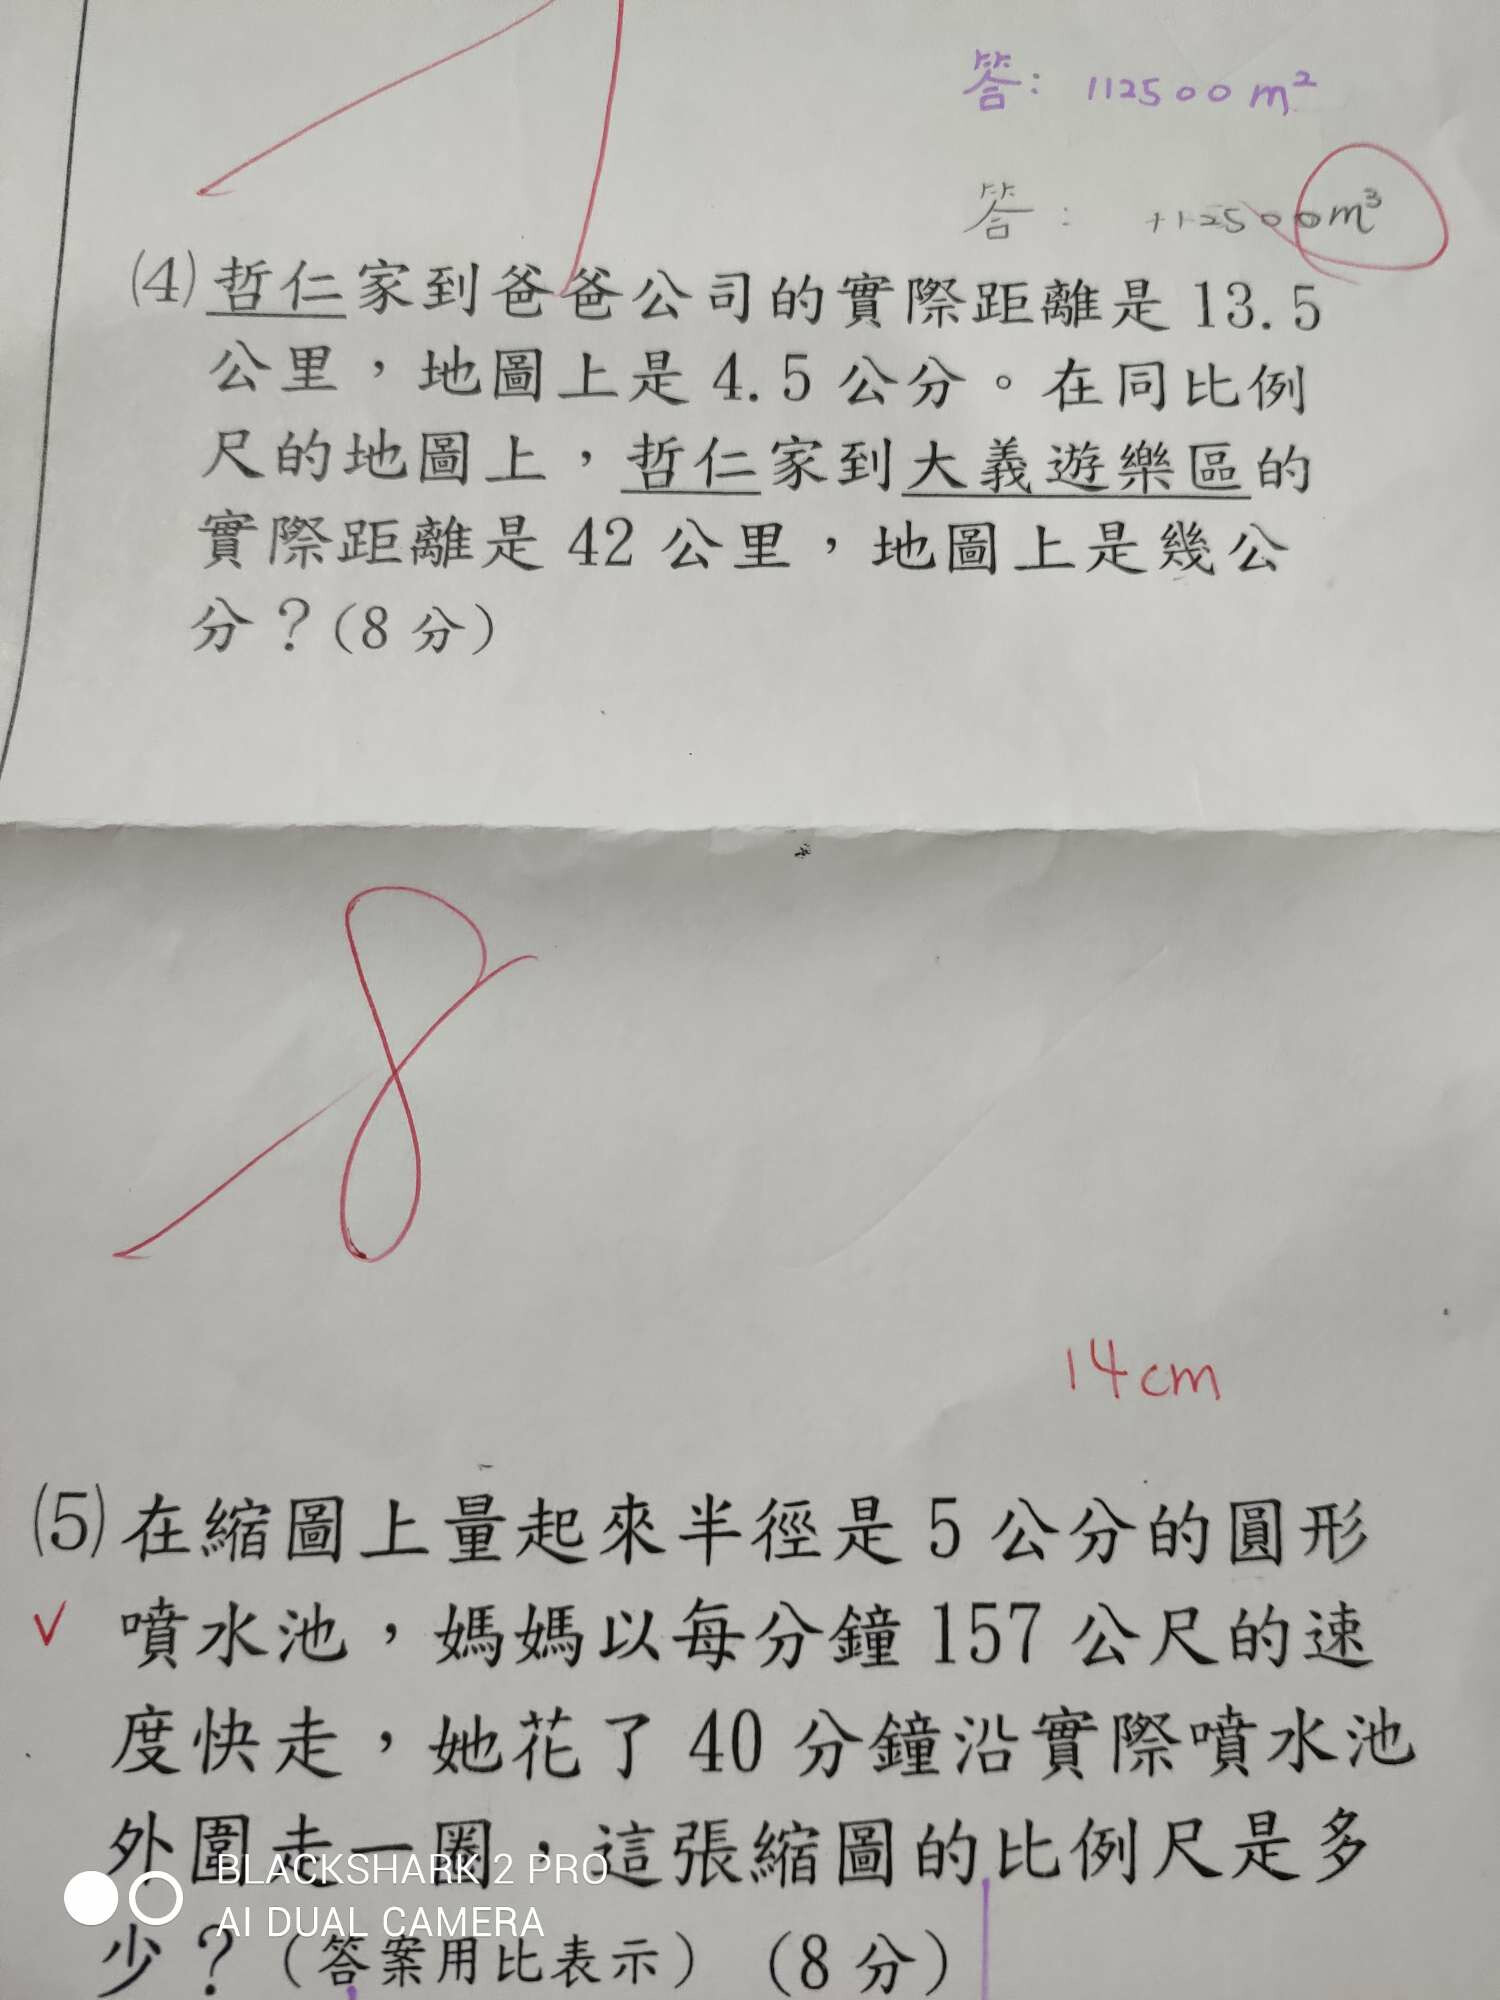 答: 112500 m²
答: 112500m³
(4)哲仁家到爸爸公司的實際距離是13.5
公里，地圖上是4.5公分。在同比例
尺的地圖上，哲仁家到大義遊樂區的
實際距離是42公里，地圖上是幾公
分？(8分)
8
14cm
(5)在縮圖上量起來半徑是5公分的圓形
噴水池，媽媽以每分鐘157公尺的速
度快走，她花了40分鐘沿實際噴水池
外圍走一圈，這張縮圖的比例尺是多
少？(答案用比表示)(8分)
BLACKSHARK 2 PRO
AI DUAL CAMERA